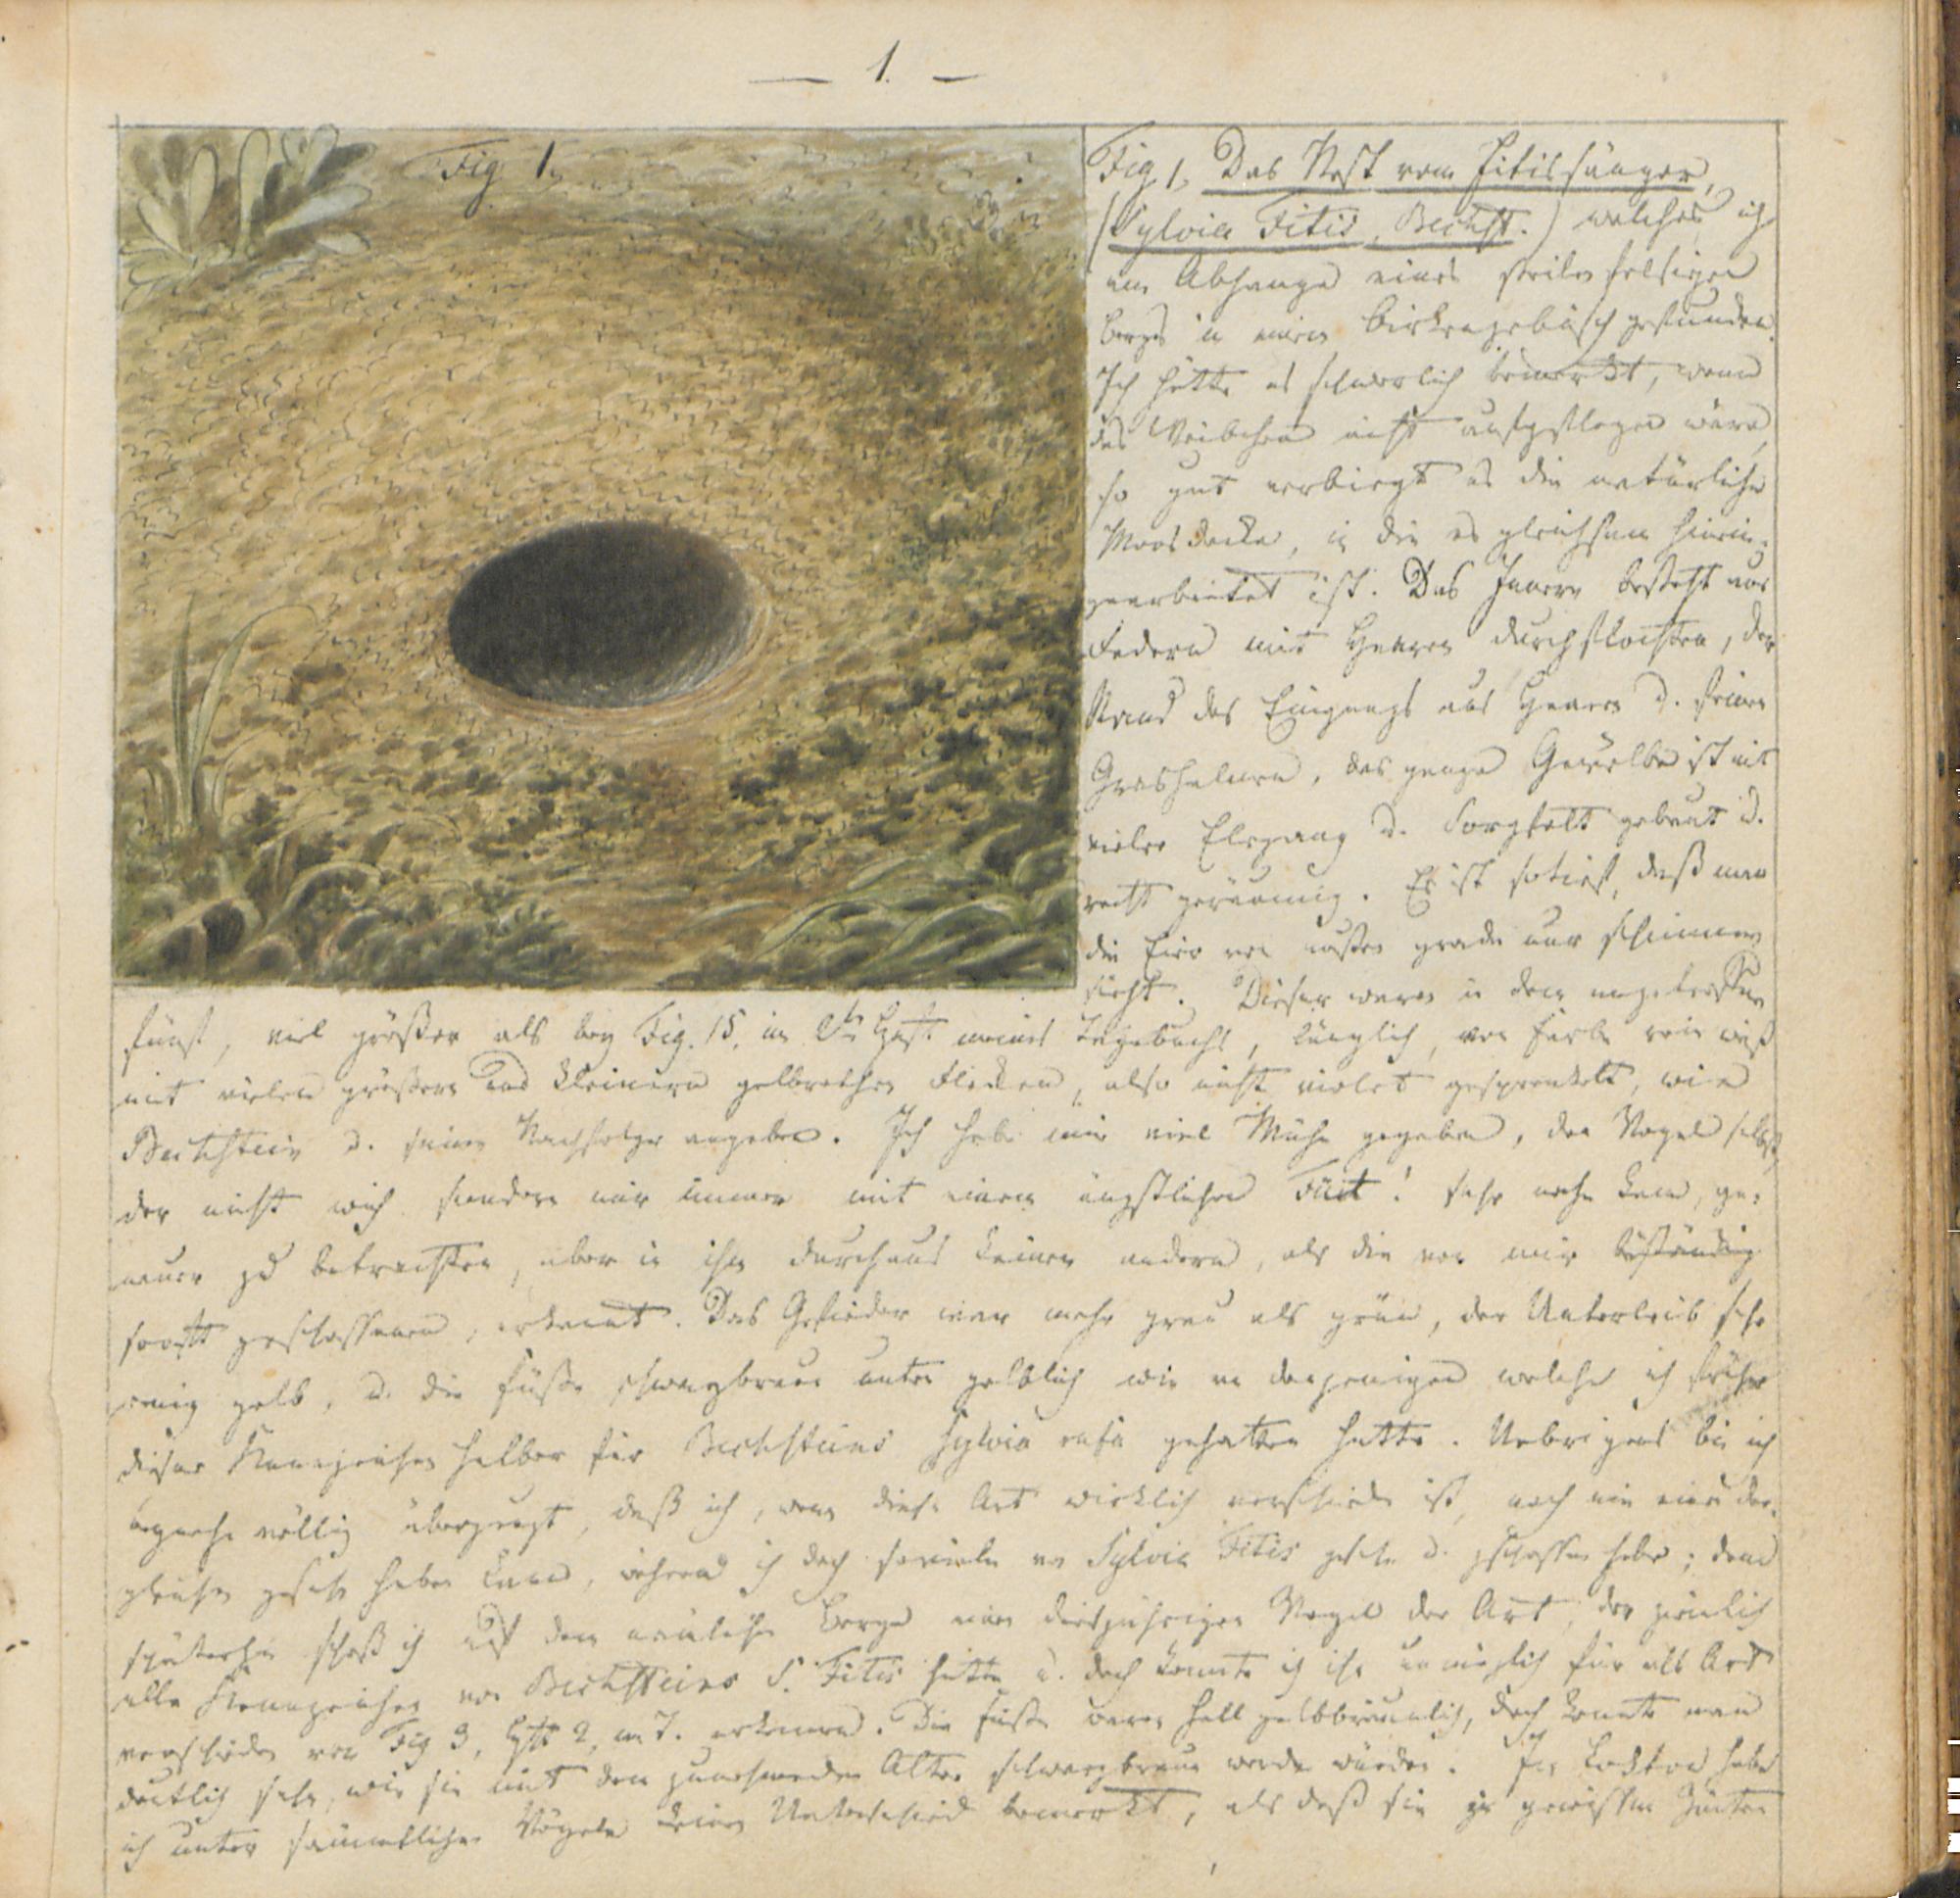 — 1. —
Fig 1.
Fig. 1. Das Nest vom Fitissänger,
(Sylvia Fitis, Bechst.) welches ich
am Abhange eines steilen felsigen
Berges in einem Birkengebüsch gefunden.
Ich hätte es schwerlich bemerkt, wenn
das Weibchen nicht ausgeflogen wäre,
so gut verbirgt es die natürliche
Moosdecke, in die es gleichsam hinein-
gearbeitet ist. Das Innere besteht aus
Federn mit Haaren durchflochten, der
Rand des Eingangs aus Haaren u. feinen
Grashalmen, das ganze Gewölbe ist mit
vieler Eleganz u. Sorgfalt gebaut u.
recht geräumig. Es ist so tief, daß man
die Eier von außen grade nur schimmern
sieht. Dieser waren in dem angetroffnen
fünf, viel größer als bey Fig. 15. im Heft meines Tagebuchs, länglich, von Farbe rein weiß
mit vielen größern und kleinern gelbrothen Flecken, also nicht violet gesprenkelt, wie
Bechstein u. seine Nachfolger angeben. Ich habe mir viel Mühe gegeben, den Vogel selbst,
der nicht wich sondern mir immer mit einem ängstlichen Füit! sehr nahe kam, ge-
nauer zu betrachten, aber in ihm durchaus keinen andern, als die von mir beständig
geschossenen, erkannt. Das Gefieder war mehr grau als grün, der Unterleib sehr
wenig gelb, u. die Füße schwarzbraun unten gelblich wie an denjenigen welche ich früher
dieser Kennzeichen halber für Bechsteins Sylvia rufa gehalten hatte. Uebrigens bin ich
völlig überzeugt, daß ich, wenn diese Art wirklich verschieden ist, noch nie eine der-
gleichen gesehn haben kann, während ich doch so viele von Sylvia Fitis gesehn u. geschossen habe; denn
späterhin schoß ich auf dem nämlichen Berge einen diesjährigen Vogel der Art, der ziemlich
alle Kennzeichen von Bechsteins S. Fitis hatte u. doch konnte ich ihn unmöglich für als Art
verschieden von Fig 3, Heft 2, m. T. erkennen. Die Füße waren hell gelbbräunlich, doch konnte man
deutlich sehn, wie sie mit dem zunehmenden Alter schwarzbraun werden würden. Im Lockton habe
ich unter sämmtlichen Vögeln keinen Unterschied bemerkt, als daß sie zu gewissen Zeiten